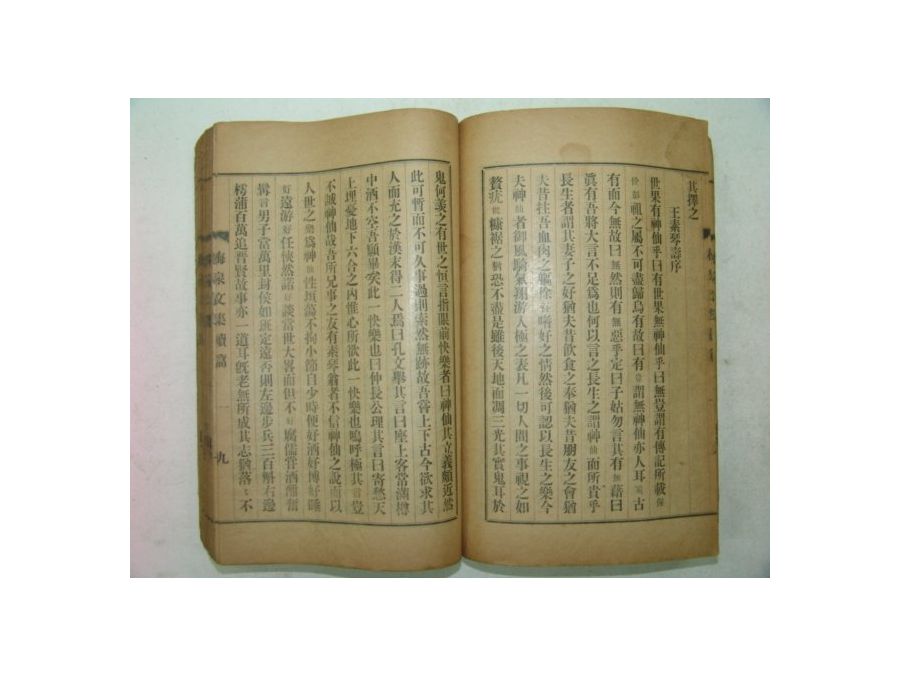 其擇之
王素琴壽序
世果有神仙乎曰有世果無神仙乎曰無豈謂有傳記所載
祖之屬不可盡歸烏有故曰有 謂無神仙亦人耳 古
有而今無故曰無然則有無惡乎定曰子姑勿言其有無藉曰
眞有吾將大言不足爲也何以言之長生之謂神仙而所貴乎
長生者謂其妻子之好猶夫昔飲食之奉猶夫昔朋友之會猶
夫昔拄吾血肉之軀徐 吾嗜好之情然後可認以長生之樂今
夫神仙者御風騎氣翔游人極之表凡一切人間之事視之如
贅疣 糠粃之 恐不盡是雖後天地而凋三光其實鬼耳於
鬼何羨之有世之恒言指眼前快樂者曰神仙其立義頗近然
此可暫而不可久事過則索然無跡故吾嘗上下古今欲求其
人而充之於漢末得二人焉曰孔文擧其言曰座上客常滿樽
中酒不空吾願畢矣此 快樂也曰仲長公理其言曰寄愁天
上埋憂地下六合之內惟心所欲此一快樂也嗚呼極其言豈
不誠神仙哉吾所兄事之友有素琴翁者不信神仙之說而以
人世之樂爲神仙性垣蕩不拘小節自少時便好酒好博好睡
好遠游好任俠然諾好談當世大畧而但不好腐儒嘗酒酣奮
髥言男子當萬里封侯如班定遠否則左邊步兵三百斛右邊
樗蒲百萬追晋賢故事亦一道耳旣老無所成其志猶落 不
梅泉文集續 九